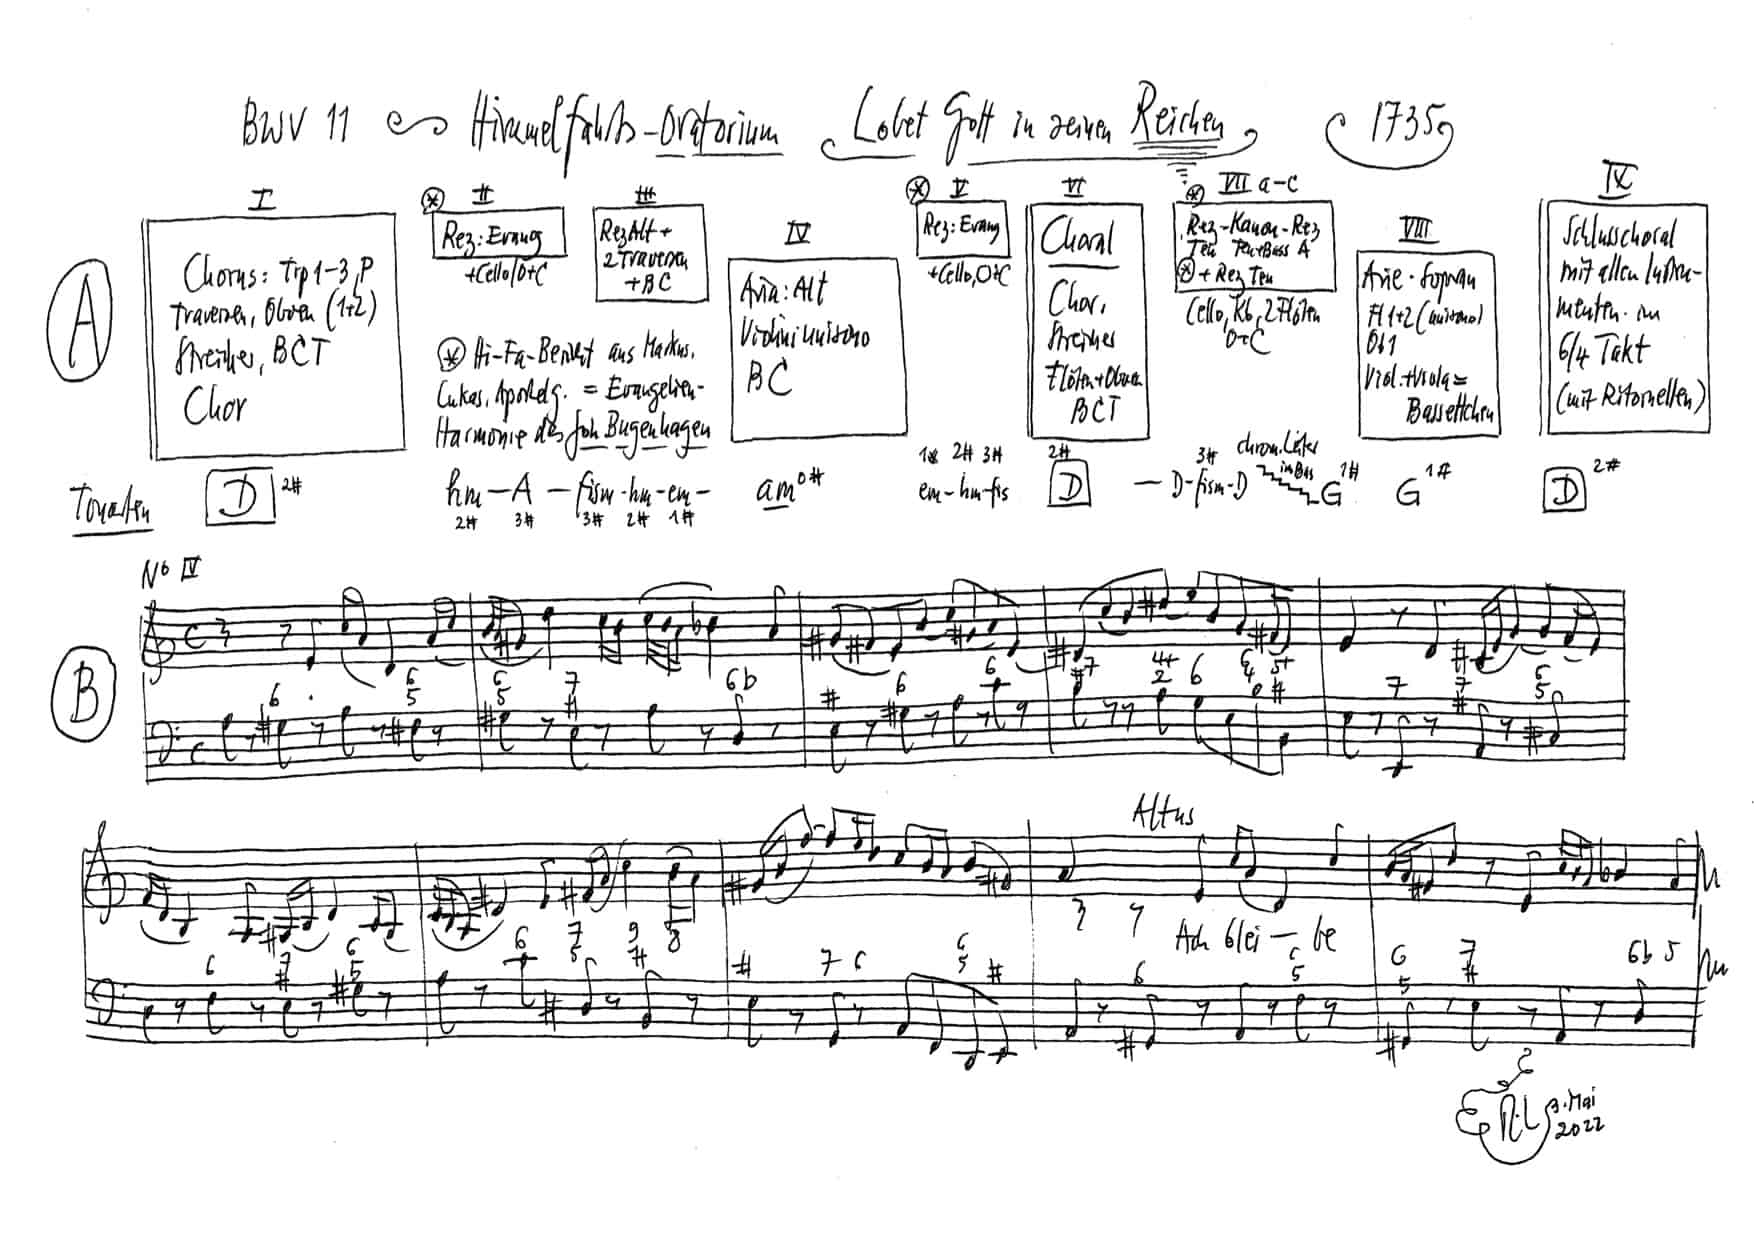 BWV 11 Himmelfahrts-Oratorium Lobet Gott in seinen Reichen 1735
I
Chorus: Trp 1-3, P
Traversen, Oboen (1+2)
Streicher, BCT
Chor
II
Rez: Evang
+Cello/O+C
III
Rez Alt +
2 Traversen
+ BC
Hi-Fa-Bericht aus Markus,
Lukas, Apostelg. = Evangelien-
Harmonie des Joh Bugenhagen
IV
Aria: Alt
Violini unisono
BC
V
Rez: Evang
+Cello, O+C
VI
Choral
Chor,
Streicher
Flöten+Oboen
BCT
VII a-c
Rez-Kanon-Rez
Ten Ten+Bass A
+ Rez Ten
Cello, Kb, 2 Flöten
O+C
VIII
Arie · Sopran
Fl 1+2 (unisono)
Ob 1
Viol.+Viola =
Bassettchen
IX
Schlusschoral
mit allen Instru-
menten im
6/4 Takt
(mit Ritornellen)
A
Tonarten
D 2#
hm – A – fism - hm - em -
2# 3# 3# 2# 1#
am 0#
1# 2# 3#
em - hm - fis
2#
D
3#
– D - fism - D
chrom. Leiter
im Bass
G 1#
G 1#
D 2#
No IV
B
Altus
Ach blei - be
3. Mai
2022